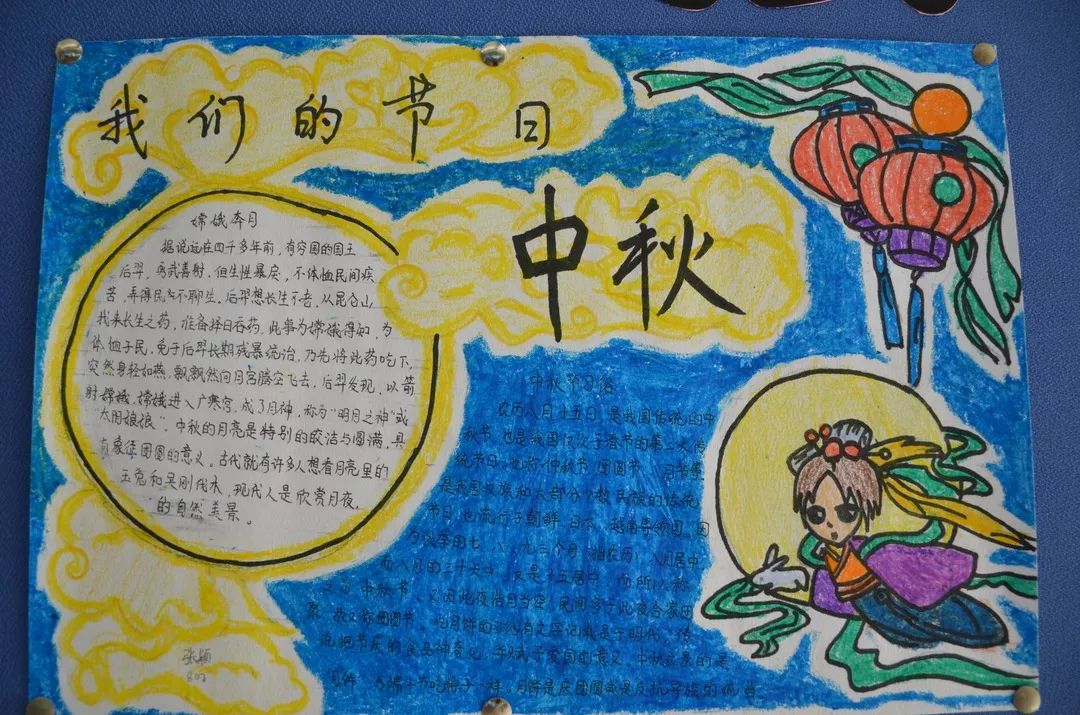 我们的节日
中秋
嫦娥奔月
据说远在四千多年前,有穷国的国王
后羿,勇武善射,但生性暴戾,不体恤民间疾
苦,弄得民不聊生。后羿想长生不老,从昆仑山
找来长生之药,准备择日吞药,此事为嫦娥得知,为
体恤子民,免于后羿长期残暴统治,乃先将此药吃下,
突然身轻如燕,飘飘然向月宫腾空飞去,后羿发现,以箭
射嫦娥,嫦娥进入广寒宫,成了月神,称为“明月之神”或
“太阴娘娘”。中秋的月亮是特别的皎洁与圆满,具
有象征团圆的意义。古代就有许多人想看月亮里的
玉兔和吴刚伐木,现代人是欣赏月夜,
的自然美景。
中秋节习俗
农历八月十五日,是我国传统的中
秋节,也是我国仅次于春节的第二大传
统节日。也称仲秋节、团圆节、八月节等,
是我国汉族和大部分少数民族的传统
节日,也流行于朝鲜、日本、越南等邻国。因
为秋季的七、八、九三个月(指农历),八月居中
而八月的三十天中,又是十五居中,而所以称
之为中秋节。又因此夜皓月当空,民间多于此夜合家团
聚,故又称团圆节。吃月饼的习俗有文字记载是于明代,传
说把节庆的食品神奇化,并赋予爱国的意义。中秋应景的是
月饼,与端午节吃粽子一样。月饼是庆团圆或是反抗异族的
张颖